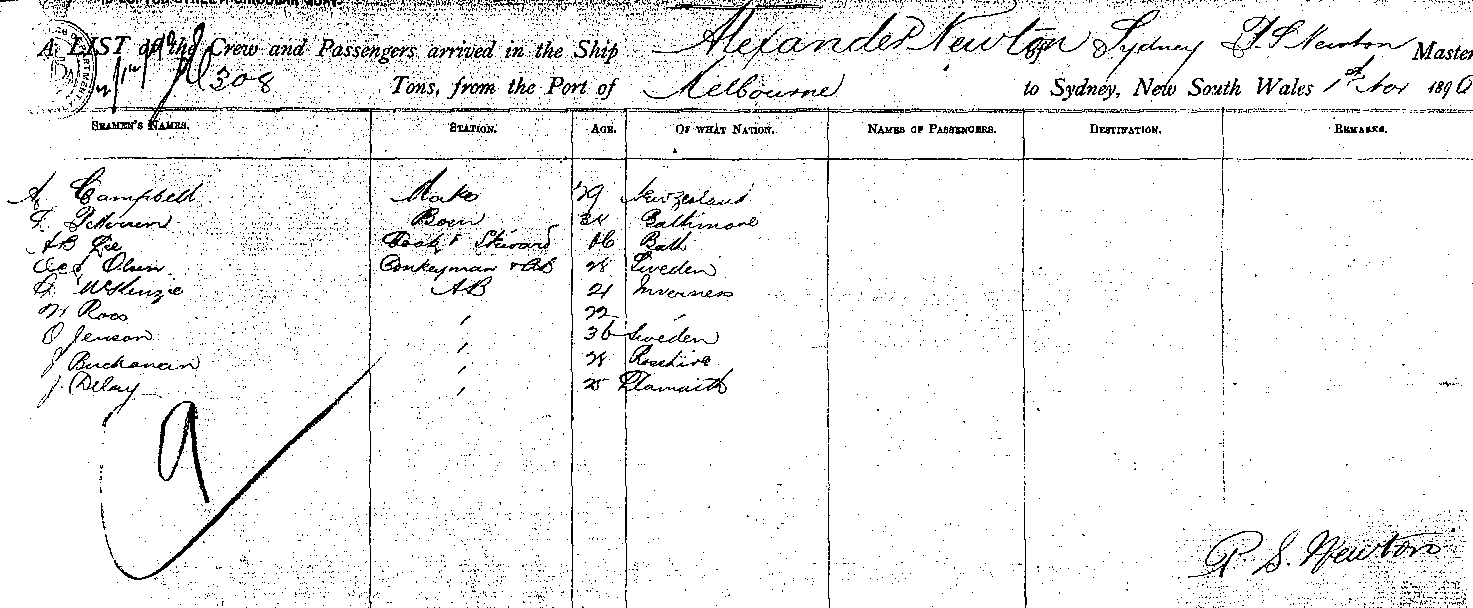 A LIST of the Crew and Passengers arrived in the Ship Alexander Newton of Sydney Newton Master
308 Tons, from the Port of Melbourne to Sydney, New South Wales 1st Nov 1896
SEAMEN'S NAMES. STATION. AGE. OF WHAT NATION. NAMES OF PASSENGERS. DESTINATION. REMARKS.
A Campbell Mate 29 New Zealand
Bosn Baltimore
A B Lee Cook & Steward Bath
Olsen Donkeyman & AB 28 Sweden
McKenzie AB 21 Inverness
Ross " 22 "
O Jenson " 36 Sweden
J Buchanan " 28
J Delay " 25
9
S. Newton